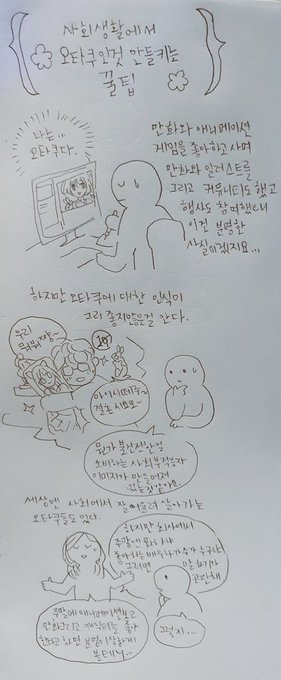 사회생활에서
오타쿠인것 안들키는
꿀팁
나는..
오타쿠다.
만화와 애니메이션
게임을 좋아하고 사며
만화와 일러스트를
그리고 커뮤니티도 했고
행사도 참여했으니
이건 분명한
사실이겠지요...
하지만 오타쿠에 대한 인식이
그리 좋지않은걸 안다.
우리
아이시떼루~
결혼시요로~
뭔가 불건전한걸
소비하는 사회부적응자
이미지가 만들어져
있는것같아요.
세상엔 사회에서 잘 어울려 살아가는
오타쿠들도 있다.
하지만 회사에서
주말엔 뭐하냐
좋아하는 배우나 가수가 누구냐
그러면 말하기가
곤란해
주말에 애니메이션보고
만화그리고 캐릭터를 좋아
한다고 하면 분명 이상하게
볼테지..
그렇지...